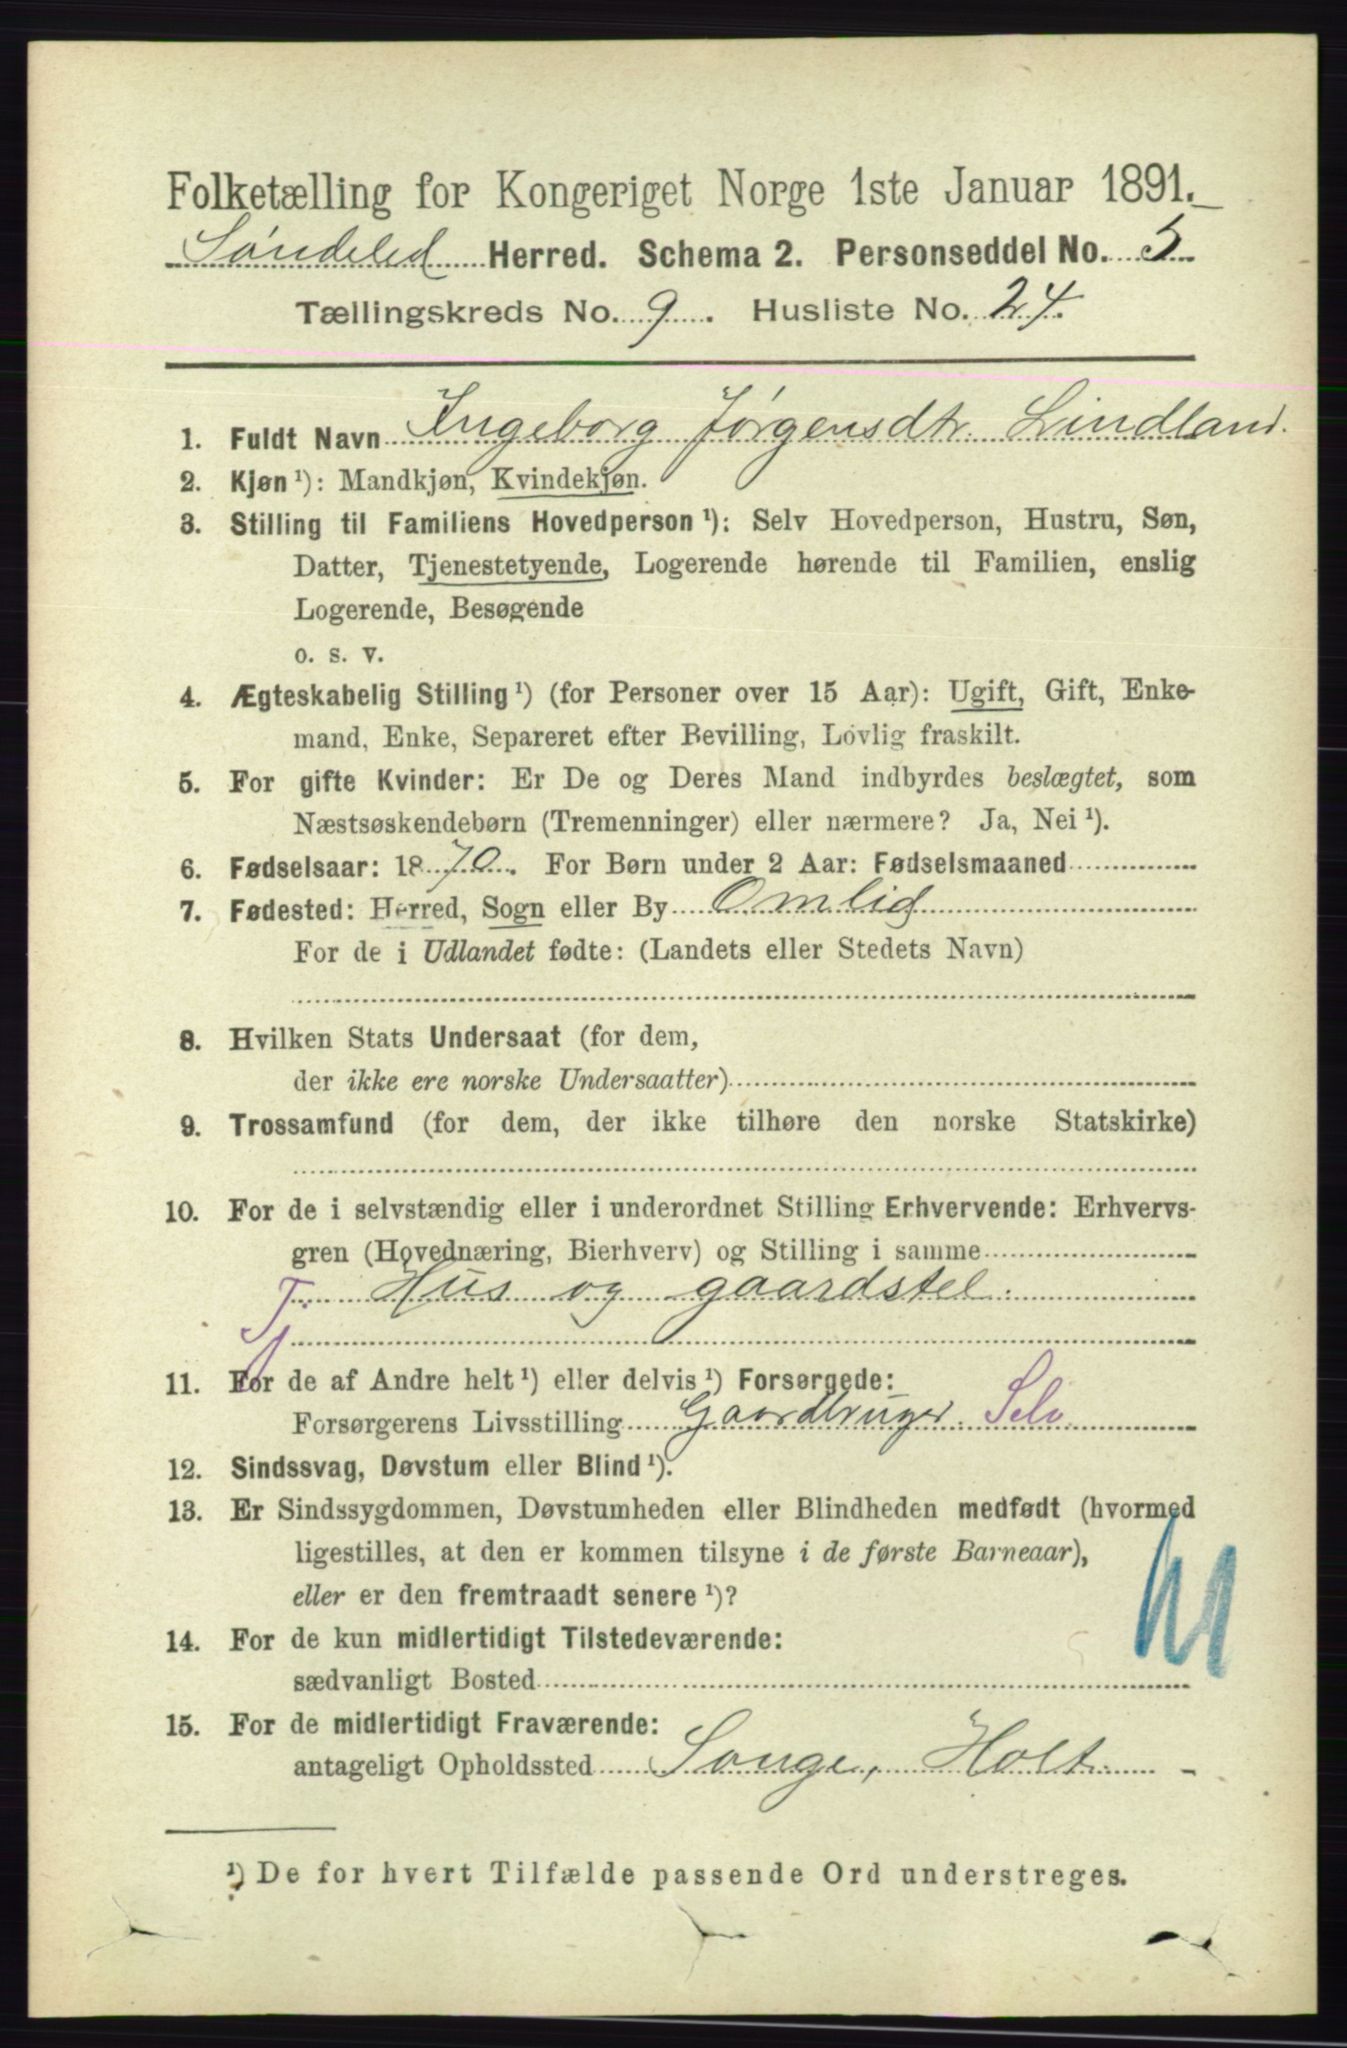 Folketælling for Kongeriget Norge 1ste Januar 1891.
Søndeled Herred. Schema 2. Personseddel No. 5
Tællingskreds No. 9. Husliste No. 24.
1. Fuldt Navn Ingeborg Jørgensdtr. Lindland.
2. Kjøn ¹): Mandkjøn, Kvindekjøn.
3. Stilling til Familiens Hovedperson ¹): Selv Hovedperson, Hustru, Søn,
Datter, Tjenestetyende, Logerende hørende til Familien, enslig
Logerende, Besøgende
o. s. v.
4. Ægteskabelig Stilling ¹) (for Personer over 15 Aar): Ugift, Gift, Enke-
mand, Enke, Separeret efter Bevilling, Lovlig fraskilt.
5. For gifte Kvinder: Er De og Deres Mand indbyrdes beslægtet, som
Næstsøskendebørn (Tremenninger) eller nærmere? Ja, Nei ¹).
6. Fødselsaar: 1870. For Børn under 2 Aar: Fødselsmaaned
7. Fødested: Herred, Sogn eller By Omlid
For de i Udlandet fødte: (Landets eller Stedets Navn)
8. Hvilken Stats Undersaat (for dem,
der ikke ere norske Undersaatter)
9. Trossamfund (for dem, der ikke tilhøre den norske Statskirke)
10. For de i selvstændig eller i underordnet Stilling Erhvervende: Erhvervs-
gren (Hovednæring, Bierhverv) og Stilling i samme
Tj. Hus og gaardstel.
11. For de af Andre helt ¹) eller delvis ¹) Forsørgede:
Forsørgerens Livsstilling Gaardbruger. Selv
12. Sindssvag, Døvstum eller Blind ¹).
13. Er Sindssygdommen, Døvstumheden eller Blindheden medfødt (hvormed
ligestilles, at den er kommen tilsyne i de første Barneaar),
eller er den fremtraadt senere ¹)?
14. For de kun midlertidigt Tilstedeværende:
sædvanligt Bosted
15. For de midlertidigt Fraværende:
antageligt Opholdssted Songe, Holt.
¹) De for hvert Tilfælde passende Ord understreges.